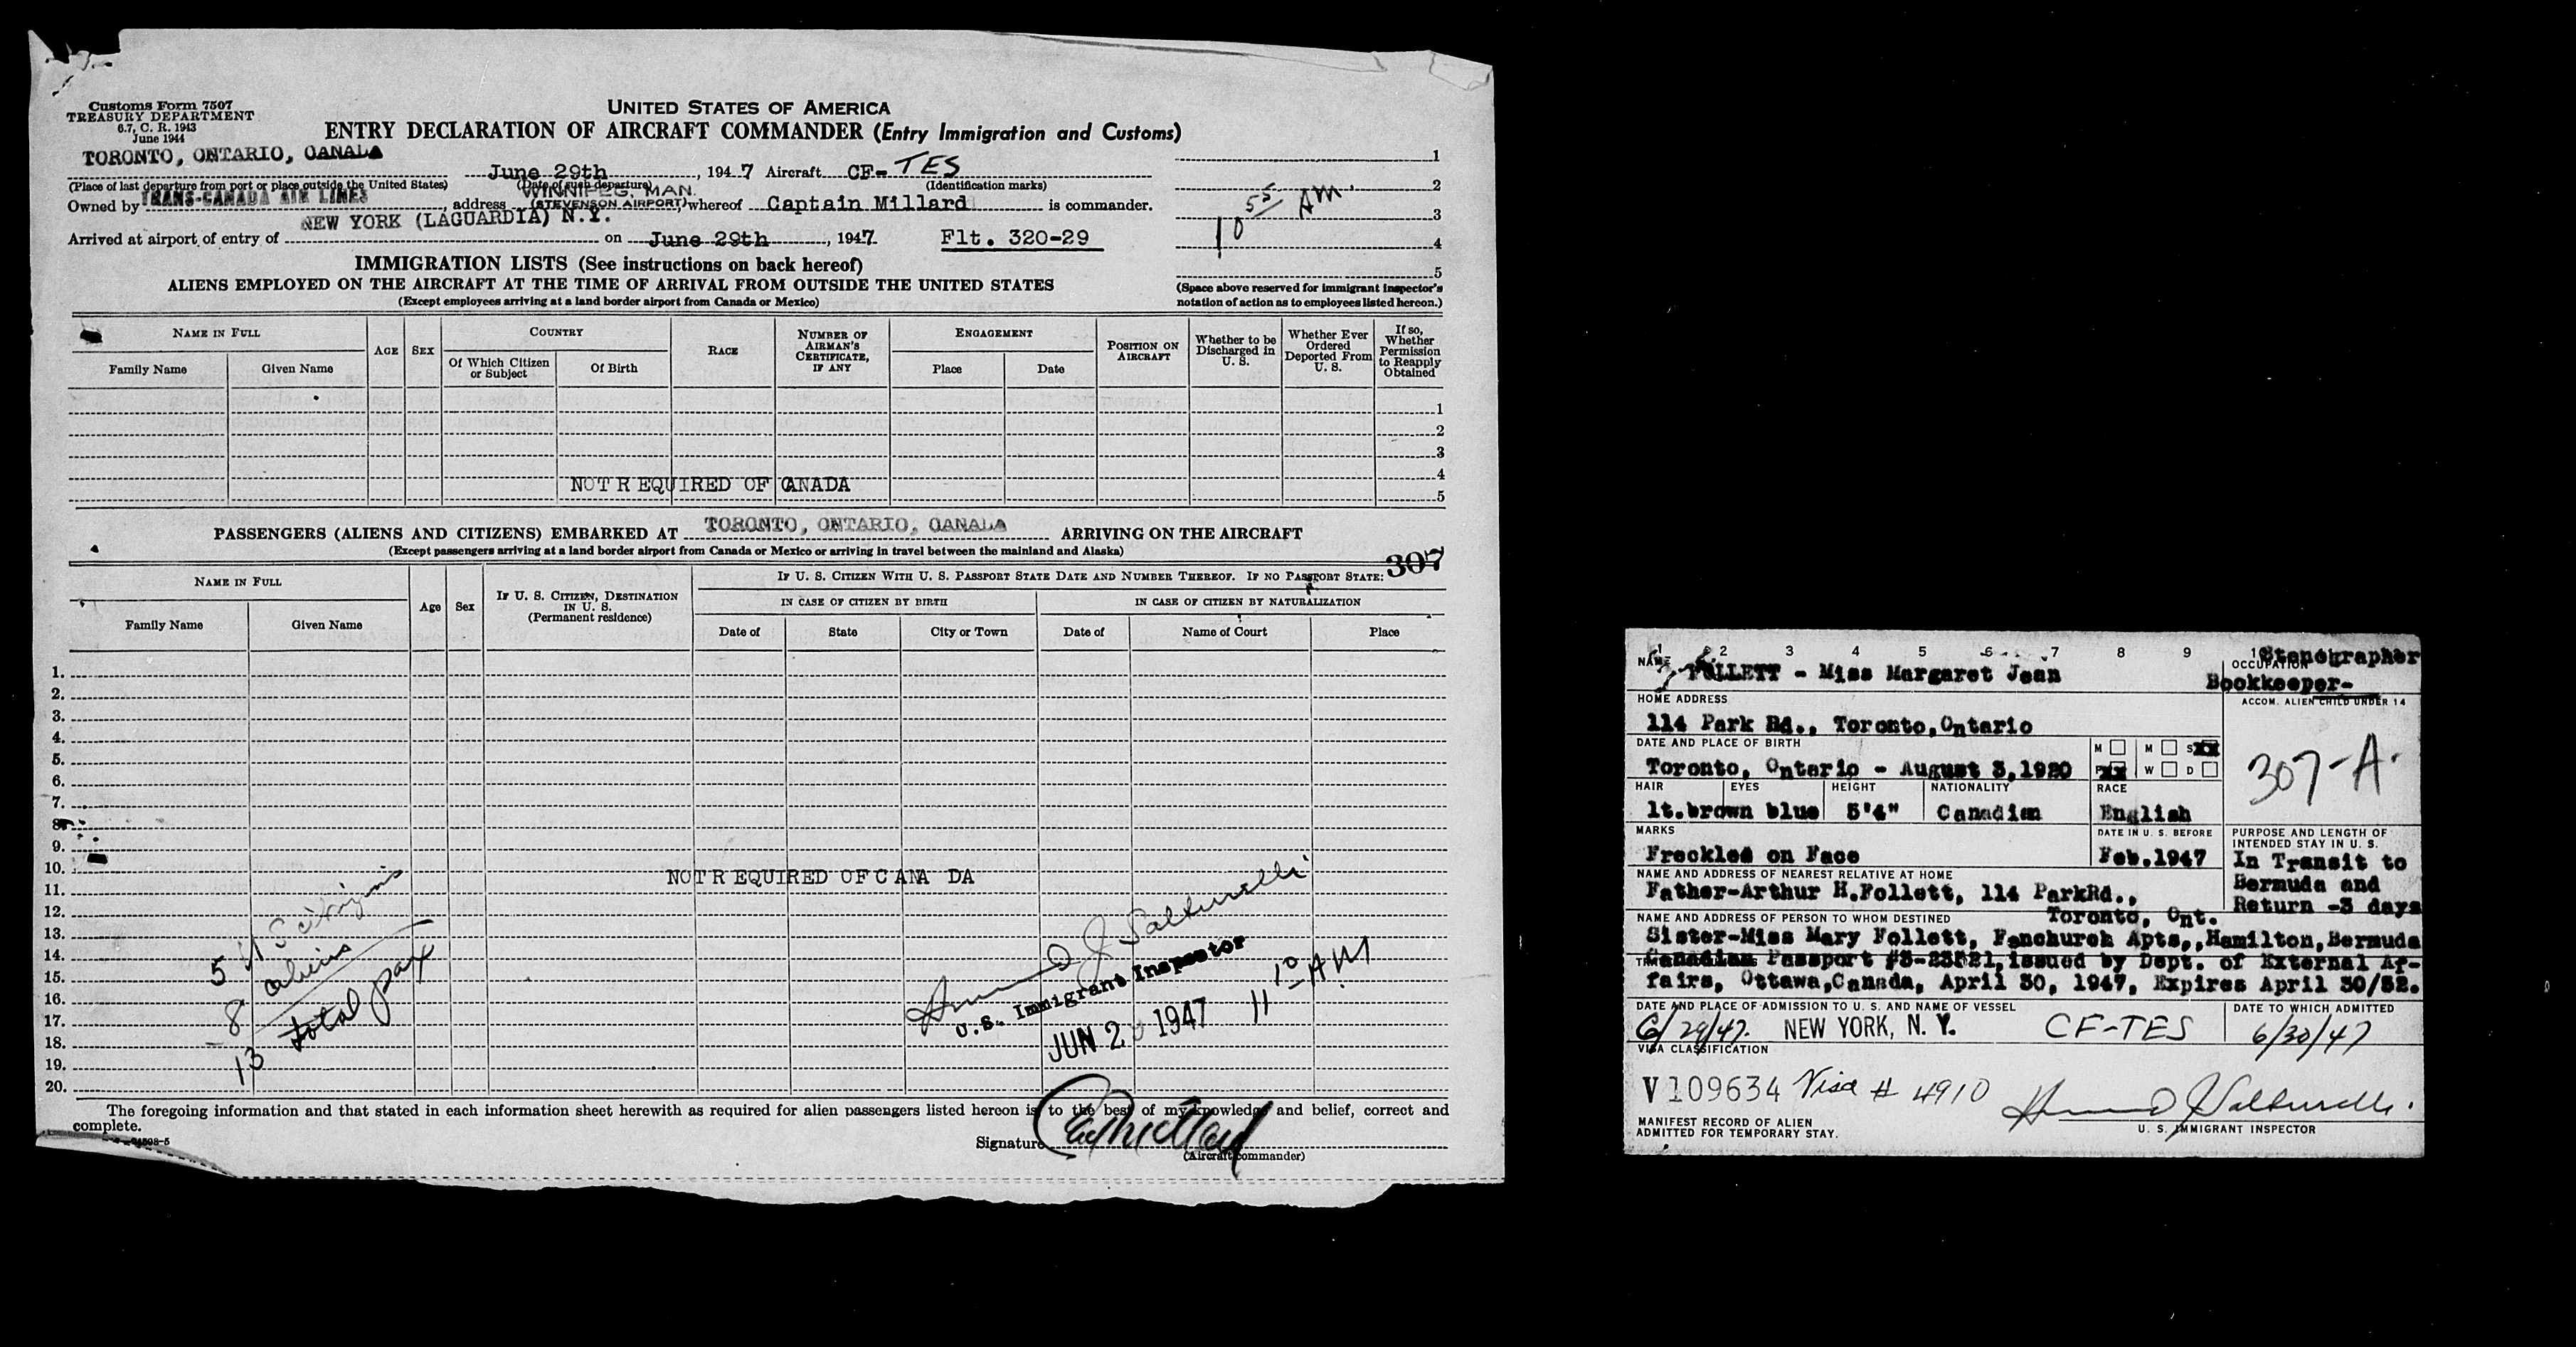 Customs Form 7507
TREASURY DEPARTMENT
6.7, C. R. 1943
June 1944
UNITED STATES OF AMERICA
ENTRY DECLARATION OF AIRCRAFT COMMANDER (Entry Immigration and Customs)
TORONTO, ONTARIO, CANADA June 29th, 1947 Aircraft CF-TES
(Place of last departure from port or place outside the United States) (Date of such departure) (Identification marks)
Owned by TRANS-CANADA AIR LINES, address WINNIPEG, MAN. (STEVENSON AIRPORT), whereof Captain Millard is commander.
Arrived at airport of entry of NEW YORK (LAGUARDIA) N.Y. on June 29th, 1947 Flt. 320-29
1
2
3
4
5
10 55 AM.
(Space above reserved for immigrant inspector's
notation of action as to employees listed hereon.)
IMMIGRATION LISTS (See instructions on back hereof)
ALIENS EMPLOYED ON THE AIRCRAFT AT THE TIME OF ARRIVAL FROM OUTSIDE THE UNITED STATES
(Except employees arriving at a land border airport from Canada or Mexico)
NAME IN FULL
Family Name Given Name
AGE SEX
COUNTRY
Of Which Citizen or Subject Of Birth
RACE
NUMBER OF AIRMAN'S CERTIFICATE, IF ANY
ENGAGEMENT
Place Date
POSITION ON AIRCRAFT
Whether to be Discharged in U. S.
Whether Ever Ordered Deported From U. S.
If so, Whether Permission to Reapply Obtained
1
2
3
4
NOT REQUIRED OF CANADA
5
PASSENGERS (ALIENS AND CITIZENS) EMBARKED AT TORONTO, ONTARIO, CANADA ARRIVING ON THE AIRCRAFT
(Except passengers arriving at a land border airport from Canada or Mexico or arriving in travel between the mainland and Alaska)
307
NAME IN FULL
Family Name Given Name
Age Sex
IF U. S. CITIZEN, DESTINATION IN U. S.
(Permanent residence)
IF U. S. CITIZEN WITH U. S. PASSPORT STATE DATE AND NUMBER THEREOF. IF NO PASSPORT STATE:
IN CASE OF CITIZEN BY BIRTH IN CASE OF CITIZEN BY NATURALIZATION
Date of State City or Town Date of Name of Court Place
1.
2.
3.
4.
5.
6.
7.
8.
9.
10.
NOT REQUIRED OF CANADA
11.
12.
13.
14.
15.
16.
17.
18.
19.
20.
5 U S citizens
8 aliens
13 total pax
U.S. Immigrant Inspector
JUN 2 1947 11 10 AM
The foregoing information and that stated in each information sheet herewith as required for alien passengers listed hereon is to the best of my knowledge and belief, correct and
complete.
Signature
(Aircraft commander)
1 2 3 4 5 6 7 8 9
NAME
FOLLETT - Miss Margaret Jean
OCCUPATION
Stenographer
Bookkeeper-
ACCOM. ALIEN CHILD UNDER 14
HOME ADDRESS
114 Park Rd., Toronto,Ontario
DATE AND PLACE OF BIRTH
Toronto, Ontario - August 3,1920
M M S XX
F XX W D
307-A.
HAIR EYES HEIGHT NATIONALITY RACE
lt.brown blue 5'4" Canadian English
MARKS
Freckles on Face
DATE IN U. S. BEFORE
Feb.1947
PURPOSE AND LENGTH OF
INTENDED STAY IN U. S.
In Transit to
Bermuda and
Return -3 days
NAME AND ADDRESS OF NEAREST RELATIVE AT HOME
Father-Arthur H.Follett, 114 ParkRd.,
Toronto, Ont.
NAME AND ADDRESS OF PERSON TO WHOM DESTINED
Sister-Miss Mary Follett, Fenchurch Apts,,Hamilton,Bermuda
Canadian Passport #3-23521,issued by Dept. of External Af-
fairs, Ottawa,Canada, April 30, 1947, Expires April 30/52.
DATE AND PLACE OF ADMISSION TO U. S. AND NAME OF VESSEL
6/29/47. NEW YORK, N. Y. CF-TES
DATE TO WHICH ADMITTED
6/30/47
VISA CLASSIFICATION
V109634 Visa # 4910
MANIFEST RECORD OF ALIEN
ADMITTED FOR TEMPORARY STAY.
U. S. IMMIGRANT INSPECTOR